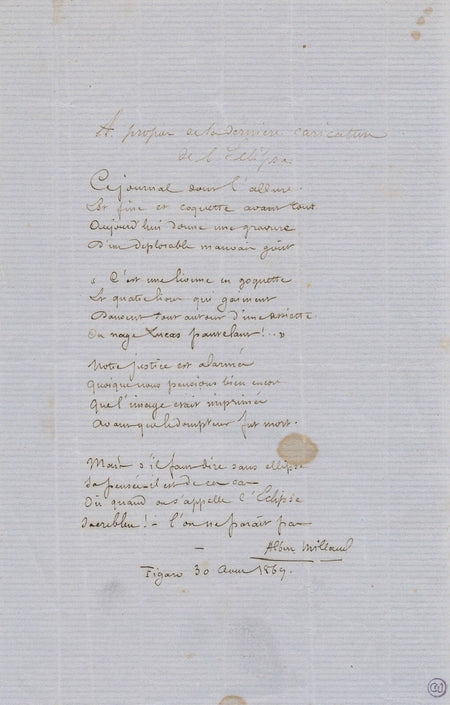 A propos de la dernière caricature
de l'Eclipse
Ce journal dont l'allure
Est fine et coquette avant tout
Aujourd'hui donne une gravure
D'un déplorable mauvais goût
« C'est une lionne en goguette
Et quatre lions qui gaiment
Dansent tout autour d'une assiette
Ou nage Lucas pantelant!.. »
Notre justice est alarmée
Quoique nous pensions bien encor
Que l'image etait imprimée
Avant que le dompteur fut mort.
Mais s'il faut dire sans ellipse
Sa pensée – il est de ces cas
Où quand on s'appelle l'Eclipse
Sacrebleu! – l'on ne parait pas
Albert Millaud
Figaro 30 Aout 1869.